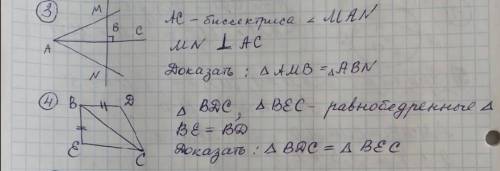 3
M
B
C
A
N
AC - биссектриса ∠ MAN
MN ⊥ AC
Доказать : △ AMB = △ ABN
4
B
D
E
C
△ BDC, △ BEC - равнобедренные △
BE = BD
Доказать : △ BDC = △ BEC